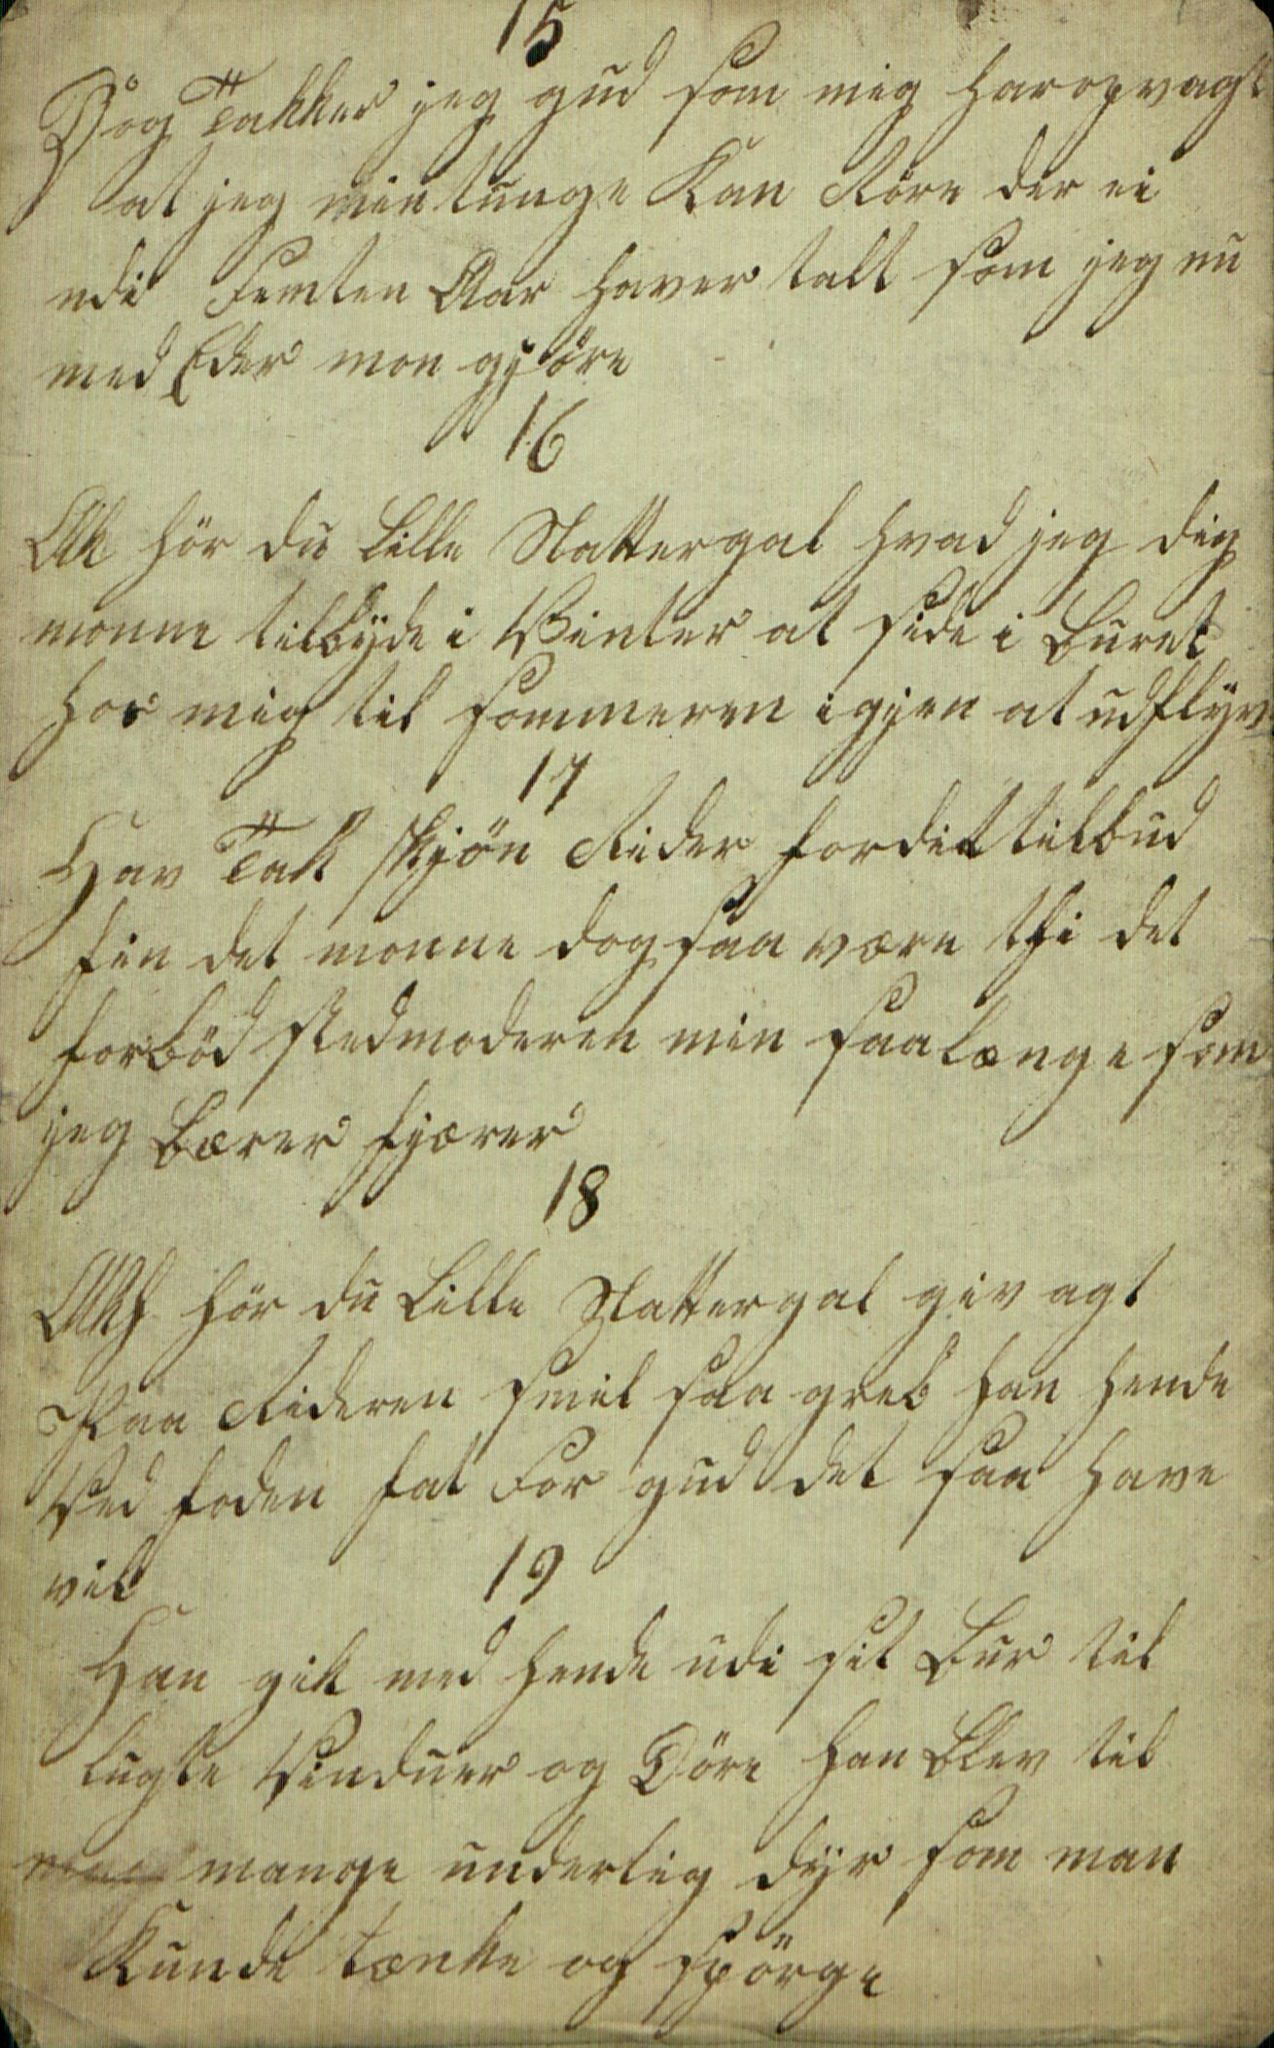 15
Dog Takker jeg gud som mig har opvagt
at jeg min tunge Kan Röre der ei
udi Femten Aar haver talt som jeg nu
med Eder mon gjöre
16
Ak hör du Lille Nattergal hvad jeg dig
monne tilbyde i Vinter at side i Buret
hos mig til sommeren igjen at udflyve
17
Hav Tak skjön Rider for dit tilbud
fin det monne dog saa være thi det
forböd stedmoderen min saalænge som
jeg Bærer fjærer
18
hör du Lille Nattergal giv agt
Paa Rideren smil saa greb han hende
Ved foden fat For gud det saa have
vil
19
Han gik med hende udi sit Bur til
lugte Vinduer og Döre han Blev til
mange underlig dyr som man
Kunde tænke og spörge